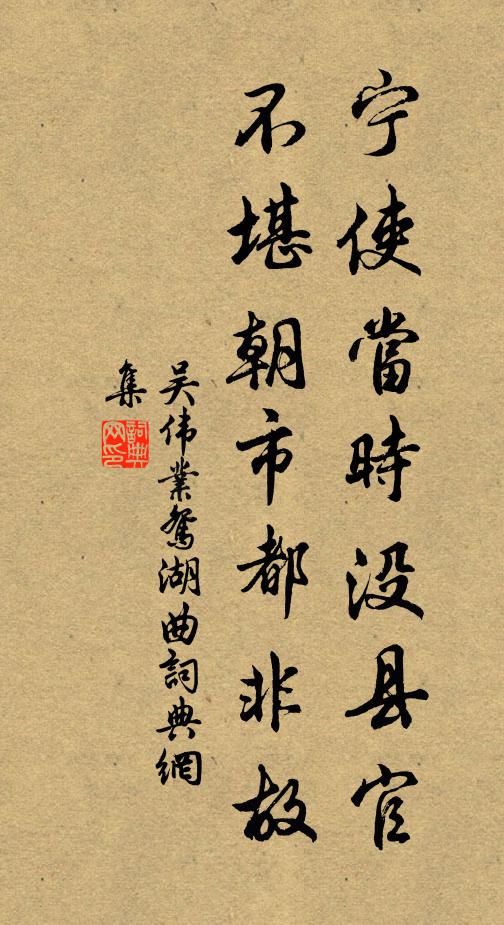 宁使當時没县官
不堪朝市都非故
吴伟業鸳湖曲詞典網
集
詞典网印